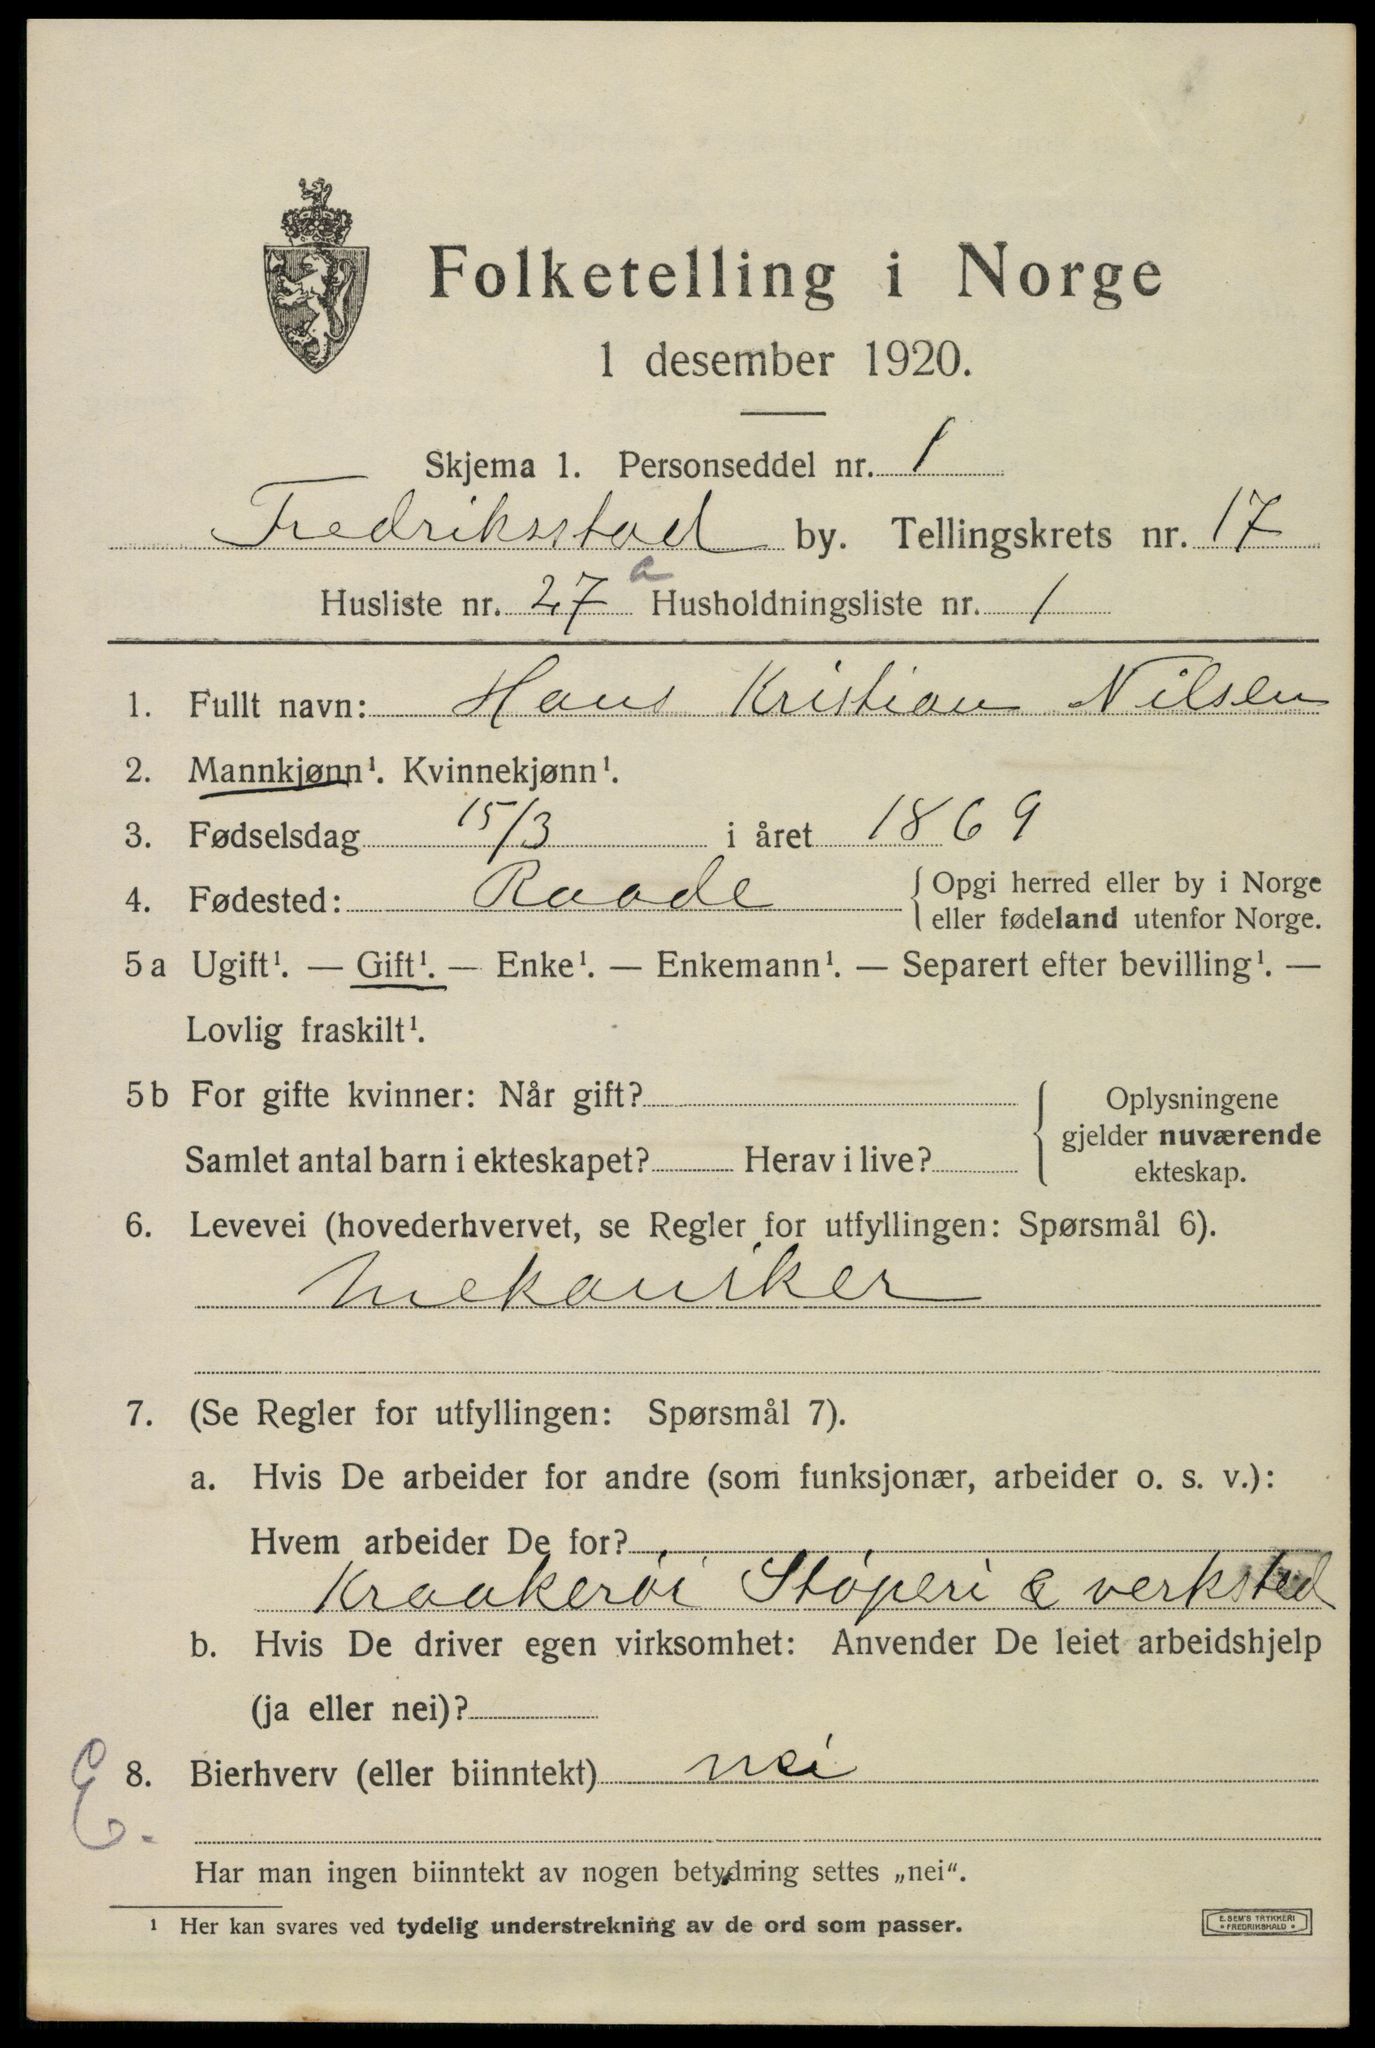 Folketelling i Norge
1 desember 1920.
Skjema 1. Personseddel nr. 1
Fredriksstad by. Tellingskrets nr. 17
Husliste nr. 27 a Husholdningsliste nr. 1
1. Fullt navn: Hans Kristian Nilsen
2. Mannkjønn¹. Kvinnekjønn¹.
3. Fødselsdag 15/3 i året 1869
4. Fødested: Raade { Opgi herred eller by i Norge
eller fødeland utenfor Norge.
5 a Ugift¹. — Gift¹. — Enke¹. — Enkemann¹. — Separert efter bevilling¹. —
Lovlig fraskilt¹.
5 b For gifte kvinner: Når gift? { Oplysningene
gjelder nuværende
Samlet antal barn i ekteskapet? Herav i live?
ekteskap.
6. Levevei (hovederhvervet, se Regler for utfyllingen: Spørsmål 6).
Mekaniker
7. (Se Regler for utfyllingen: Spørsmål 7).
a. Hvis De arbeider for andre (som funksjonær, arbeider o. s. v.):
Hvem arbeider De for?
Kraakerøi Støperi & verksted
b. Hvis De driver egen virksomhet: Anvender De leiet arbeidshjelp
(ja eller nei)?
E. 8. Bierhverv (eller biinntekt) nei
Har man ingen biinntekt av nogen betydning settes „nei“.
¹ Her kan svares ved tydelig understrekning av de ord som passer.
E. SEM'S TRYKKERI
* FREDRIKSHALD *